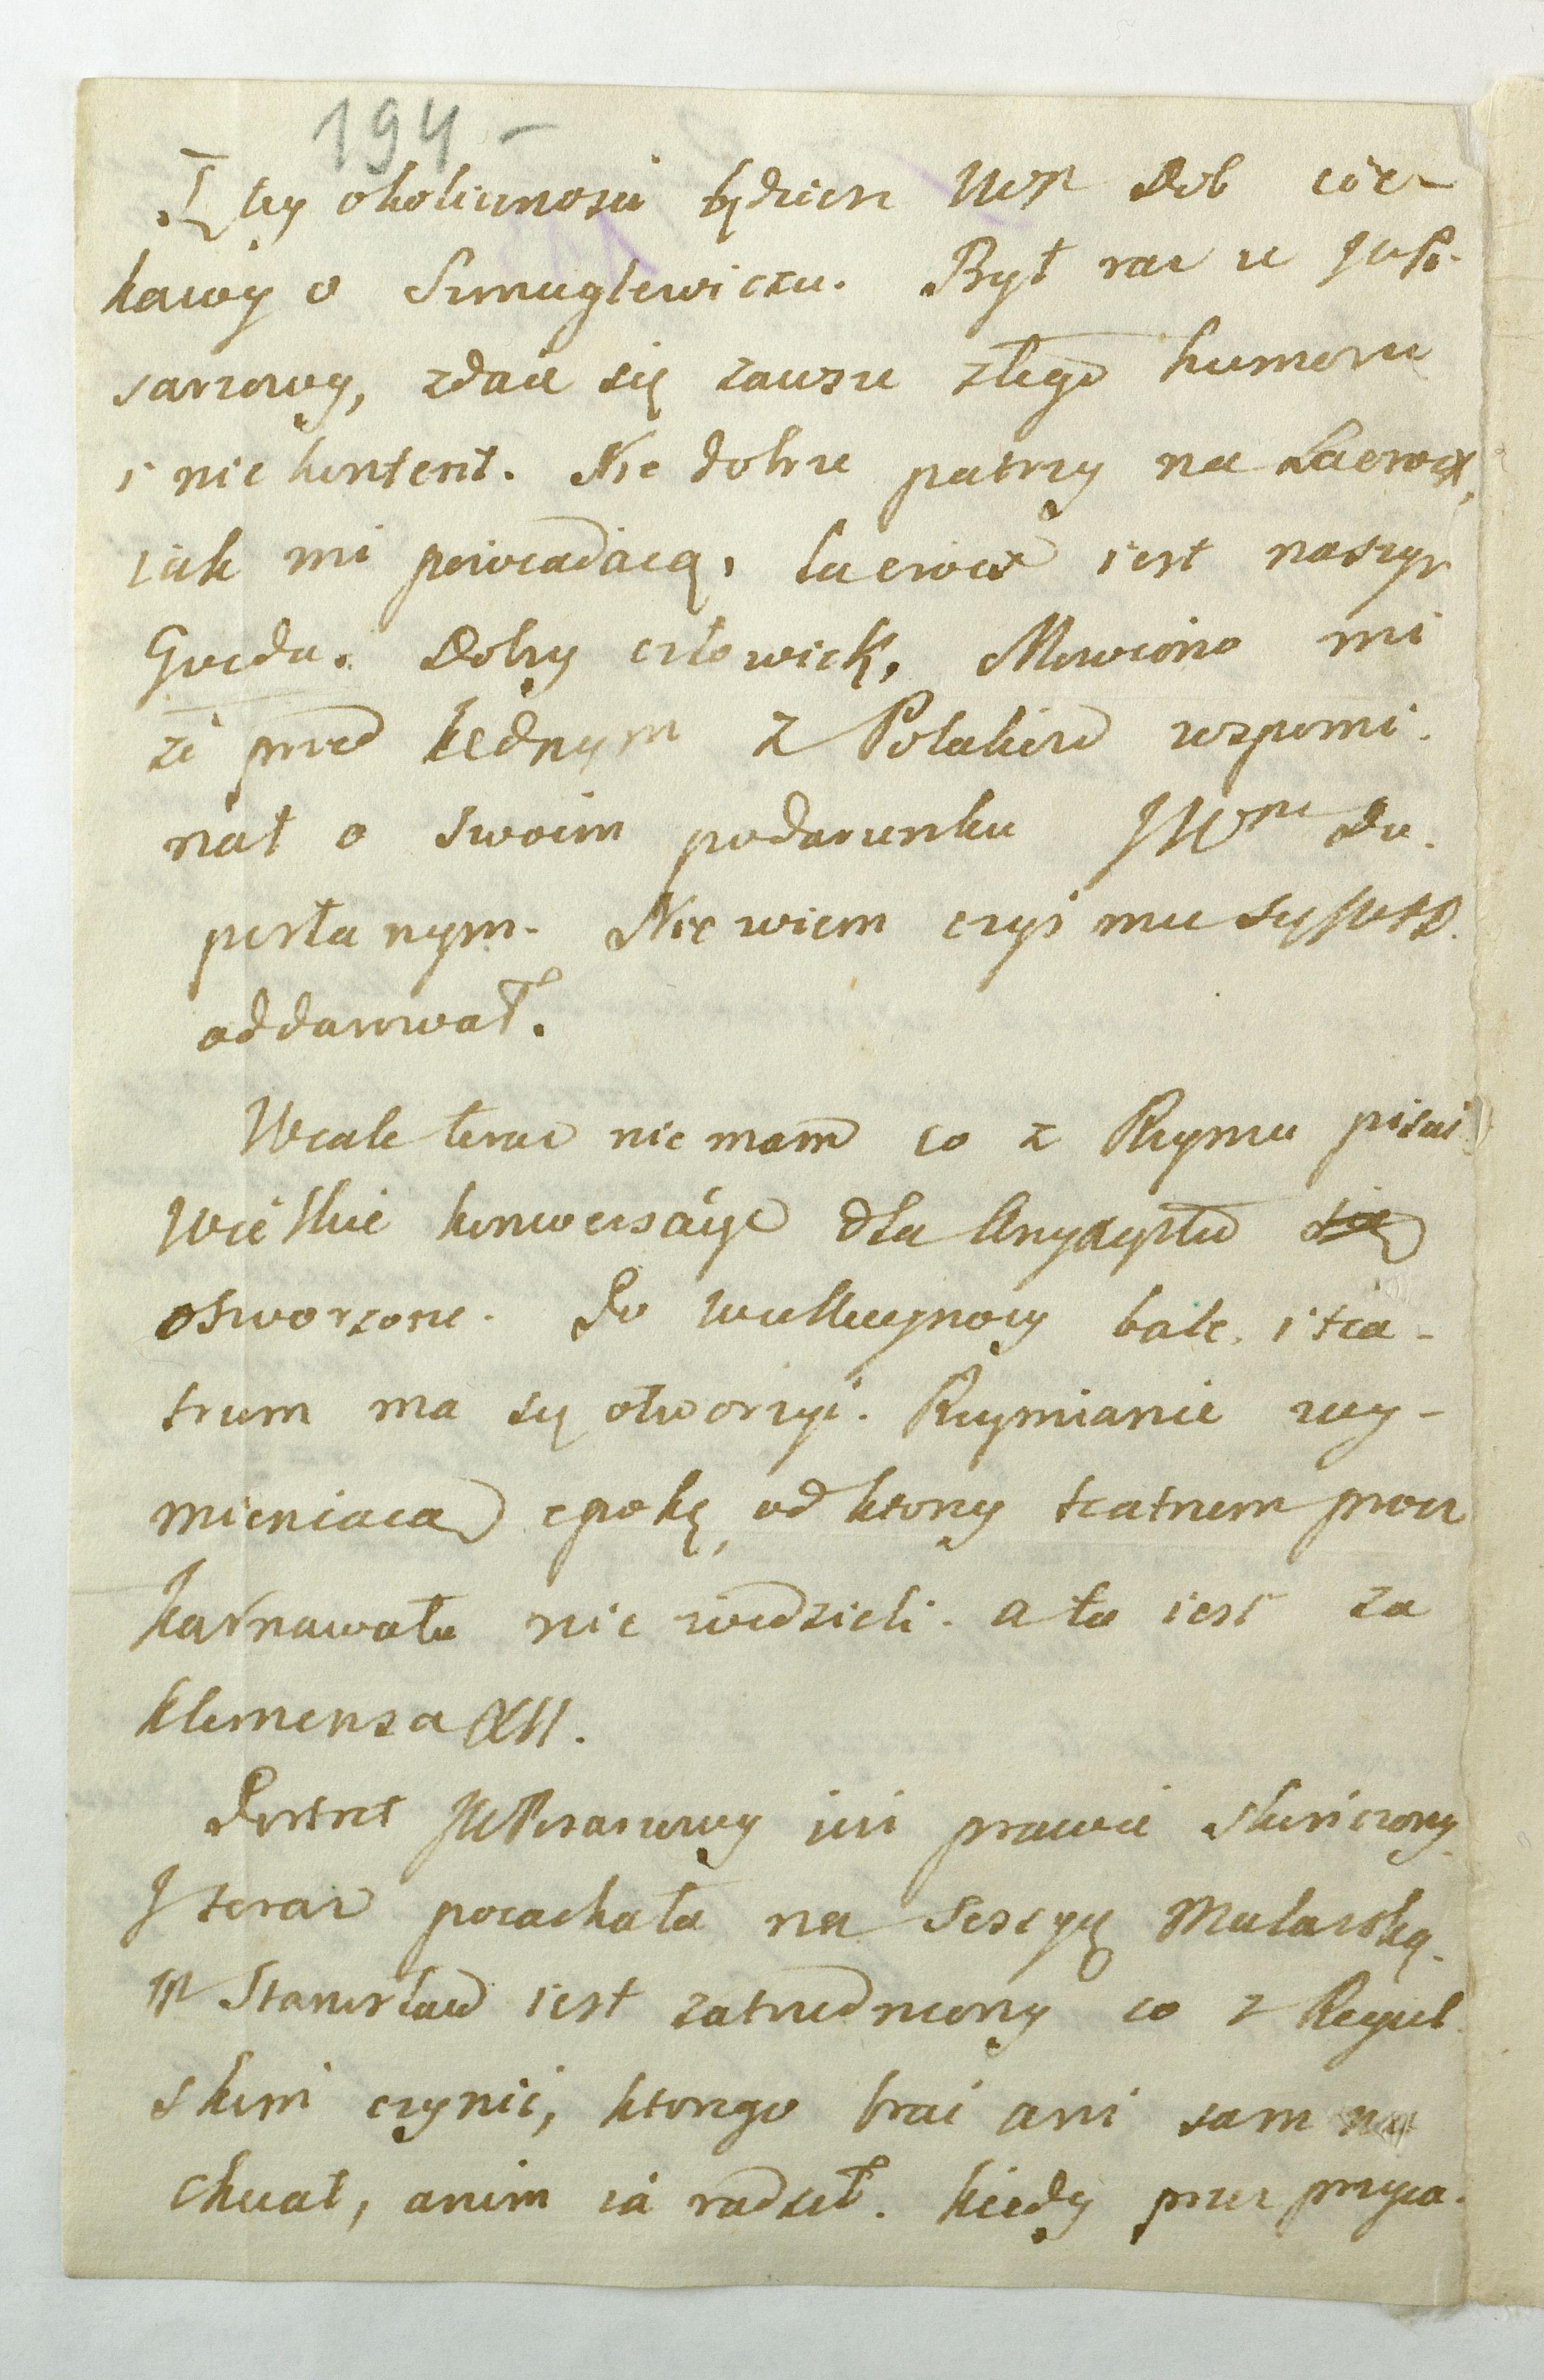 194 -
Z tey okolicznosci będziesz WPn Dob cie-
kawy o Smuglewiczu. Był raz u JWPi-
sarzowey, zdaie się zawsze złego humoru
i nie kontent. Nie dobrze patrzy na Lacroix,
iak mi powiadaią, Lacroix iest naszym
Gucda. Dobry człowiek, Mowiono mi
że przed iednym z Polakow wspomi-
nał o swoim podarunku JWPnu Do.
posłanym. Nie wiem czyś mu się JWPD.
oddarował.
Wcale teraz nie mam co z Rzymu pisać
Wielkie konwersacye dla Arcyxcstw są
otworzone. Po Wielkieynocy bale, i tea-
trum ma się otworzyć. Rzymianie wy-
mieniaią epokę, od ktorey teatrum procz
karnawału nie widzieli. a to iest za
Klemensa XII.
Portret JWPisarzowey iuż prawie skończony.
J teraz poiachała na sessyą Malarską.
JP Stanisław iest zatrudniony co z Regul-
skim czynić, ktorego brać ani sam nie
chciał, anim ia radził. Kiedy przez przyia-